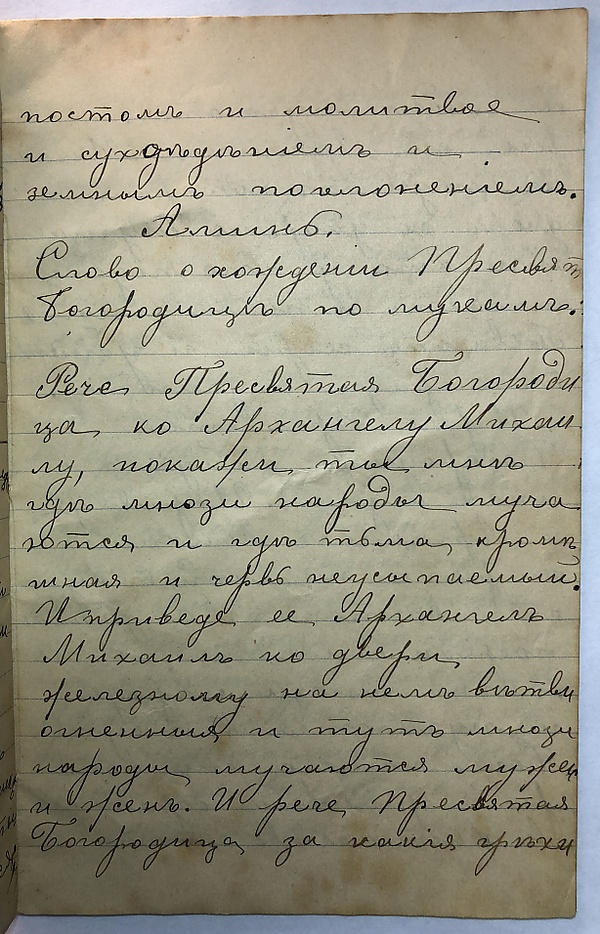 постомъ и молитвое
и сухдѣдѣніемъ и
земнымъ поклоненіемъ.
Аминь.
Слово о хождении Пресвят
Богородицѣ по мукамъ.
Рече Пресвятая Богороди
ца ко Архангелу Михаи
лу, покажи ты мнѣ
гдѣ мнози народы муча
ются и гдѣ тьма кромѣ
шная и червь неусыпаемый.
И приведе ее Архангелъ
Михаилъ ко двери
железному на немъ вѣтви
огненныя и тутъ мнози
народы мучаются мужен
и женъ. И рече Пресвятая
Богородица за какія грѣхи